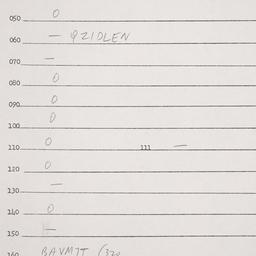 050 0
060 — QZIDLEN
070 —
080 0
090 0
100 0
110 0 111 —
120 0
130 —
140 0
150 —
160 BAVMIT (320